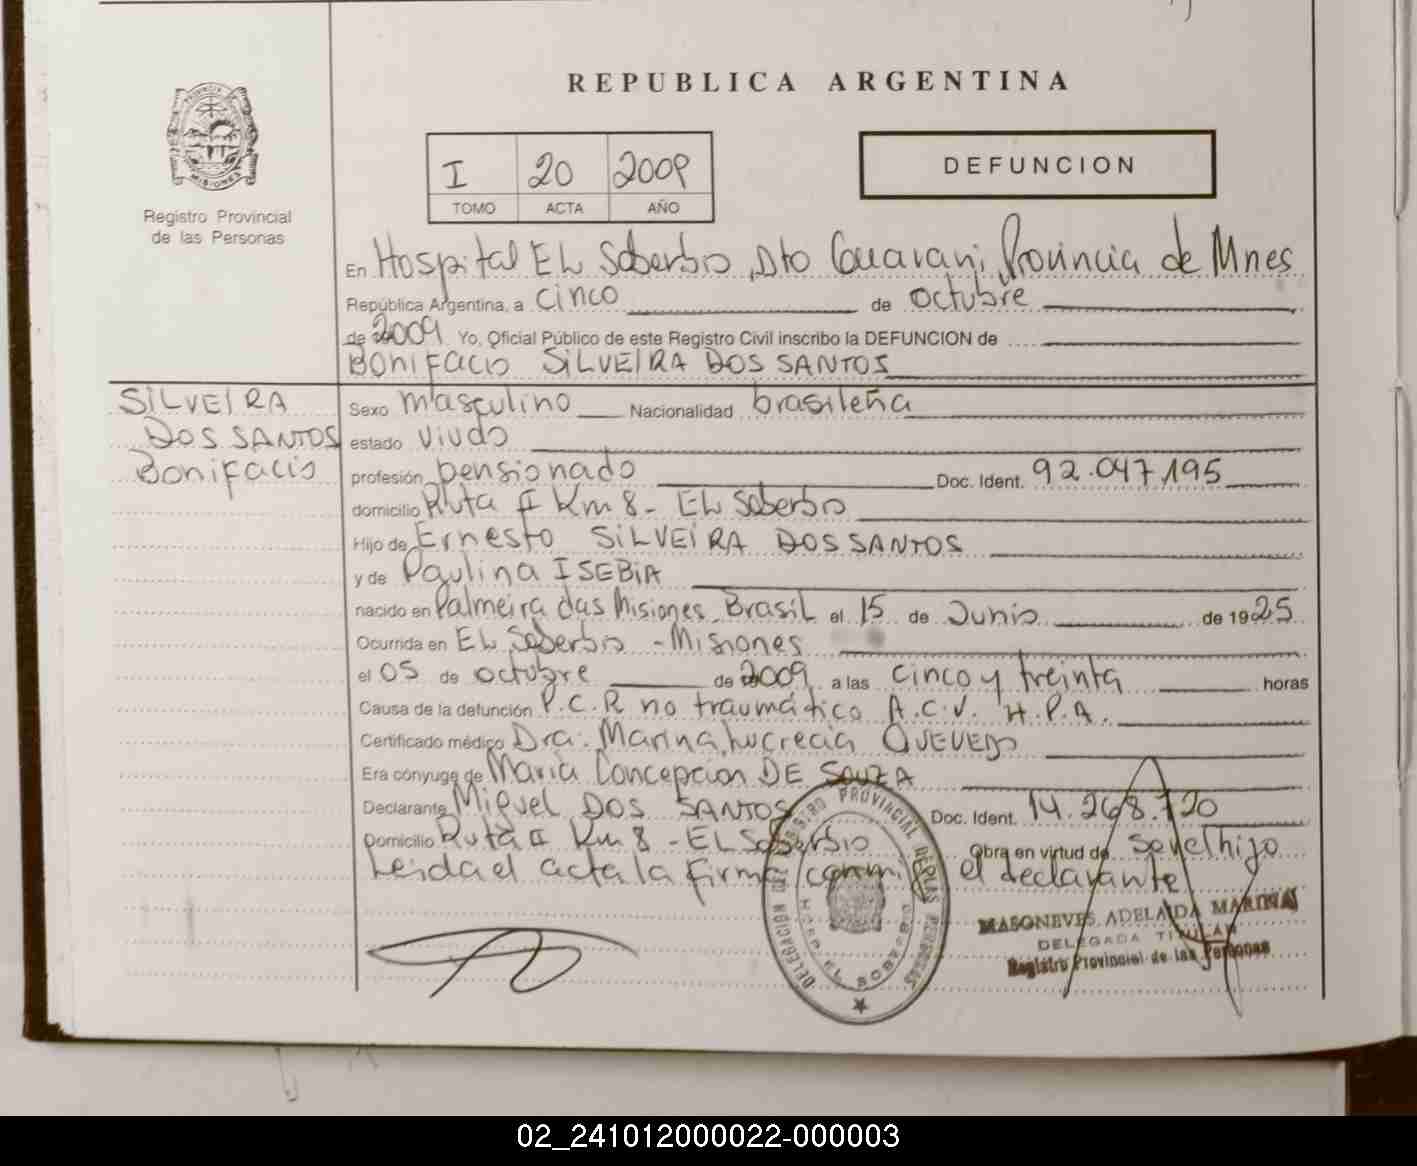 REPUBLICA ARGENTINA
PROVINCIA DE MISIONES
Registro Provincial
de las Personas
I 20 2009
TOMO ACTA AÑO
DEFUNCION
En Hospital EL Soberbio, Dto Guarani, Provincia de Mnes
República Argentina, a cinco de octubre
de 2009 Yo, Oficial Público de este Registro Civil inscribo la DEFUNCION de
Bonifacio SILVEIRA DOS SANTOS
SILVEIRA
DOS SANTOS
Bonifacio
Sexo masculino Nacionalidad brasileña
estado viudo
profesión pensionado Doc. Ident. 92.047.195
domicilio Ruta I Km 8 - EL Soberbio
Hijo de Ernesto SILVEIRA DOS SANTOS
y de Paulina ISEBIA
nacido en Palmeira das Misiones, Brasil el 15 de Junio de 1925
Ocurrida en EL Soberbio - Misiones
el 05 de octubre de 2009 a las cinco y treinta horas
Causa de la defunción P.C.R no traumático A.C.V. H.P.A.
Certificado médico Dra. Marina Lucrecia QUEVEDO
Era cónyuge de Maria Concepcion DE SOUZA
Declarante Miguel DOS SANTOS Doc. Ident. 14.268.720
Domicilio Ruta I Km 8 - EL Soberbio Obra en virtud de ser el hijo
Leida el acta la firma conmigo el declarante
REGISTRO PROVINCIAL DE LAS PERSONAS
DELEGACION
HOSP. EL SOBERBIO
MASGNEVES ADELAIDA MARINA
DELEGADA TITULAR
Registro Provincial de las Personas
02_241012000022-000003